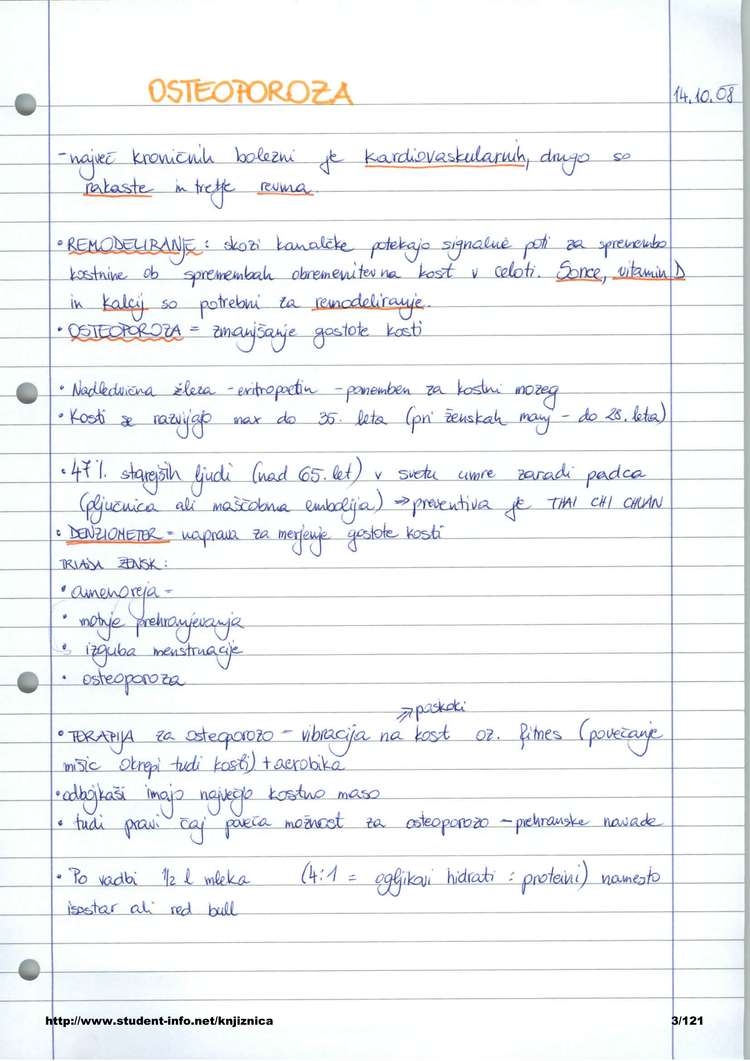 OSTEOPOROZA
14.10.08
- največ kroničnih bolezni je kardiovaskularnih, drugo so
rakaste in tretje revma.
• REMODELIRANJE : skozi kanalčke potekajo signalne poti za spremembo
kostnine ob spremembah obremenitev na kost v celoti. Sonce, vitamin D
in kalcij so potrebni za remodeliranje.
• OSTEOPOROZA = zmanjšanje gostote kosti
• Nadledvična žleza - eritropoetin - pomemben za kostni mozeg
• Kosti se razvijajo max do 35. leta (pri ženskah manj - do 28. leta)
• 47%. starejših ljudi (nad 65. let) v svetu umre zaradi padca
(pljučnica ali maščobna embolija) ⇒ preventiva je THAI CHI CHUAN
• DENZIOMETER - naprava za merjenje gostote kosti
TRIADA ŽENSK :
• amenoreja -
• motnje prehranjevanja
• izguba menstruacije
• osteoporoza
⇒ poskoki
• TERAPIJA za osteoporozo - vibracija na kost oz. fitnes (povečanje
mišic okrepi tudi kosti) + aerobika
• odbojkaši imajo največjo kostno maso
• tudi pravi čaj poveča možnost za osteoporozo - prehranske navade
• Po vadbi 1/2 l mleka (4:1 = ogljikovi hidrati : proteini) namesto
isostar ali red bull
http://www.student-info.net/knjiznica
3/121